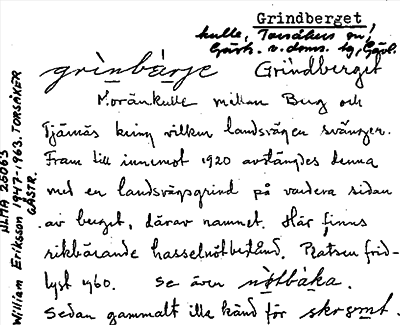 Grindberget
kulle, Torsåkers sn,
Gästr. ö. doms. tg, Gävl.
grìnbǽrje Grindberget
Moränkulle mellan Berg och
Tjärnäs kring vilken landsvägen svänger.
Fram till inemot 1920 avstängdes denna
med en landsvägsgrind på vardera sidan
av berget, därav namnet. Här finns
rikbärande hasselnötbestånd. Platsen frid-
lyst 1960. Se även nötbàka.
Sedan gammalt illa känd för skrömt.
ULMA 25063
William Eriksson 1947-1963. TORSÅKER
GÄSTR.